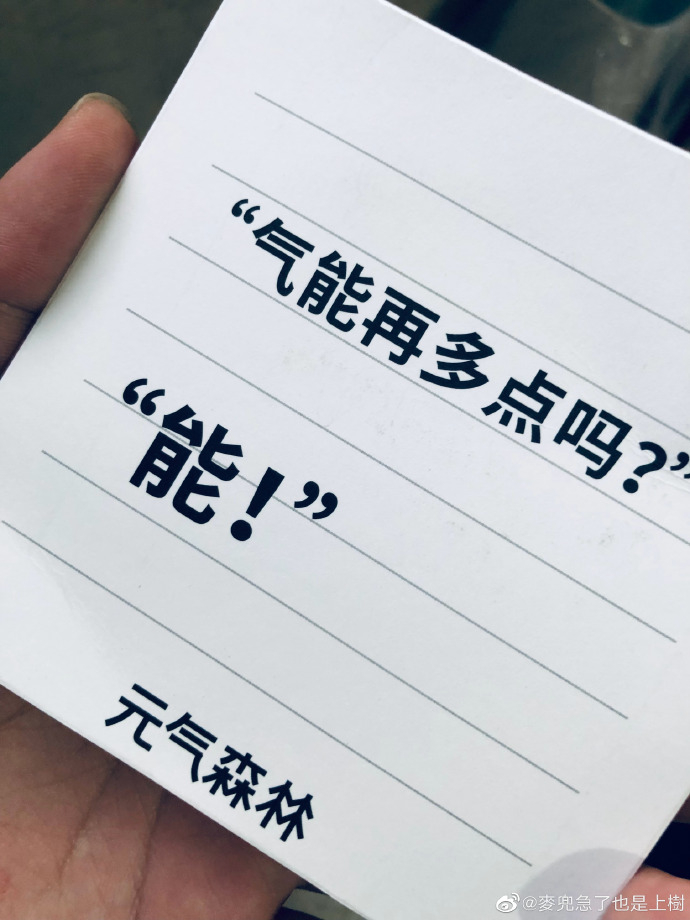 “气能再多点吗?”
“能!”
元气森林
@麥兜急了也是上樹